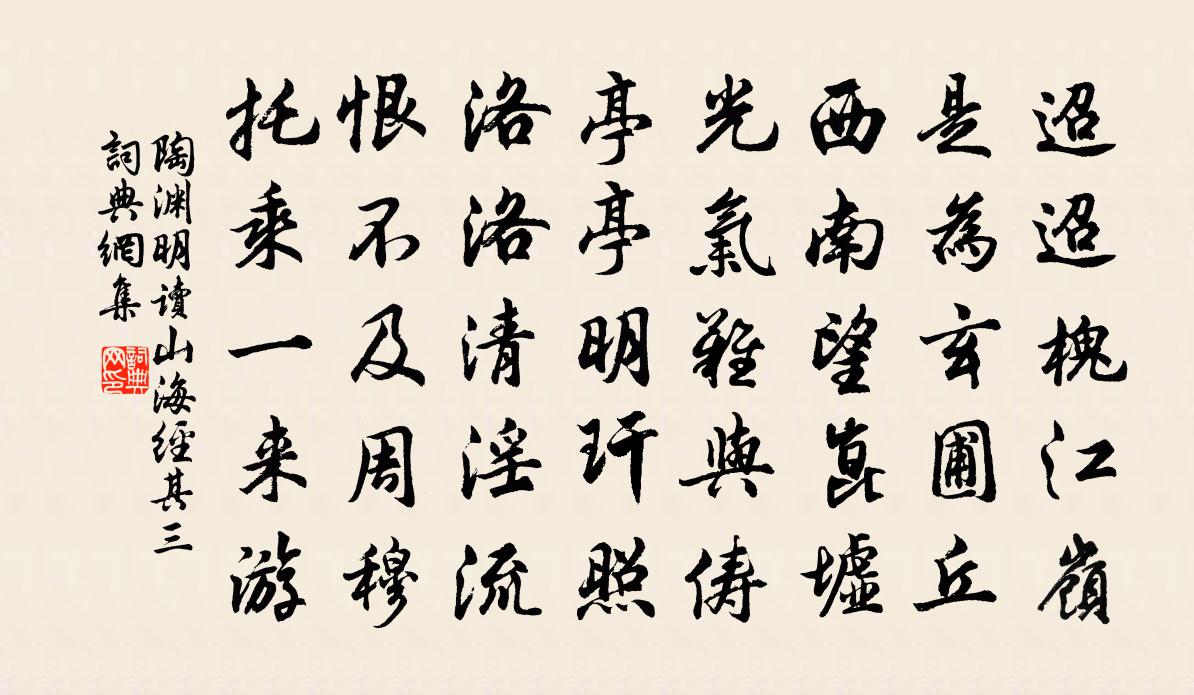 迢迢槐江嶺
是為玄圃丘
西南望崑墟
光氣難與儔
亭亭明玕照
洛洛清淫流
恨不及周穆
托乘一来游
陶渊明讀山海經其三
詞典網集
詞典网印